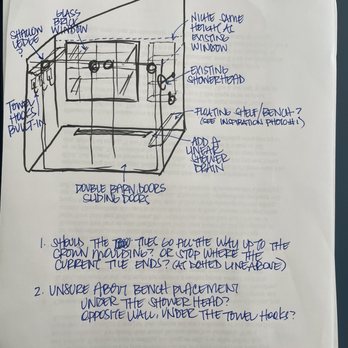 GLASS
BRICK
WINDOW
SHALLOW
LEDGE
?
NICHE SAME
HEIGHT AS
EXISTING
WINDOW
EXISTING
SHOWERHEAD
TOWEL
HOOKS/
BUILT-IN
FLOATING SHELF/BENCH?
(SEE INSPIRATION PHOTO #1)
ADD A
LINEAR
SHOWER
DRAIN
DOUBLE BARN DOORS
SLIDING DOORS
1. SHOULD THE TILES GO ALL THE WAY UP TO THE
CROWN MOULDING? OR STOP WHERE THE
CURRENT TILE ENDS? (AT DOTTED LINE ABOVE)
2. UNSURE ABOUT BENCH PLACEMENT
UNDER THE SHOWER HEAD?
OPPOSITE WALL, UNDER THE TOWEL HOOKS?